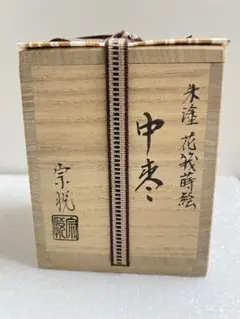 朱塗 花筏蒔絵
中棗
宗悦